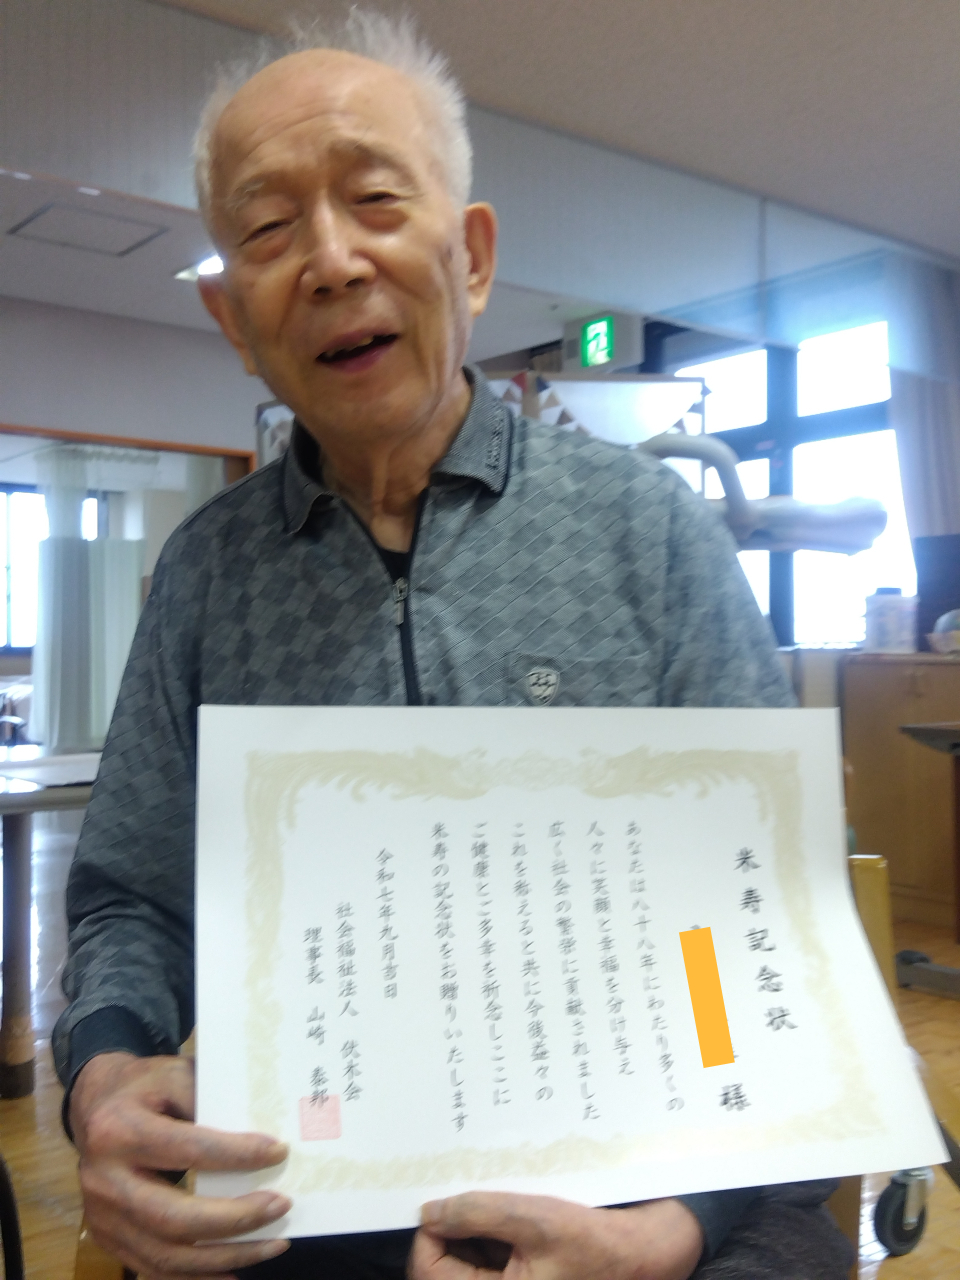 米寿記念状
様
あなたは八十八年にわたり多くの
人々に笑顔と幸福を分け与え
広く社会の繁栄に貢献されました
これを称えると共に今後益々の
ご健康とご多幸を祈念しここに
米寿の記念状をお贈りいたします
令和七年九月吉日
社会福祉法人 伏木会
理事長 山崎 泰邦